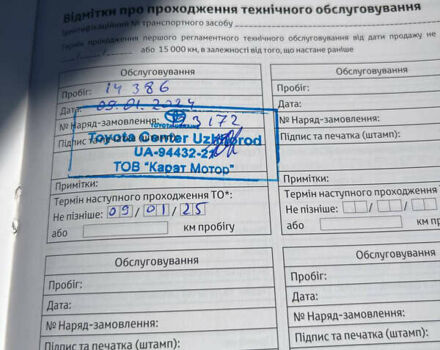 Відмітки про проходження технічного обслуговування
Ідентифікаційний № транспортного засобу
Термін проходження першого регламентного технічного обслуговування від дати продажу не
або 15 000 км, в залежності від того, що настане раніше
Обслуговування
Пробіг: 14 386
Дата: 09.01.2024
№ Наряд-замовлення: 3172
Підпис та печатка (штамп):
Toyota Center Uzhgorod
UA-94432-22
ТОВ "Карат Мотор"
Примітки:
Термін наступного проходження ТО*:
Не пізніше: 09 / 01 / 25
або км пробігу
Обслуговування
Пробіг:
Дата:
№ Наряд-замовлення:
Підпис та печатка (штамп):
Примітки:
Термін наступного проходження
Не пізніше: / /
або
Обслуговування
Пробіг:
Дата:
№ Наряд-замовлення:
Підпис та печатка (штамп):
Обслуговування
Пробіг:
Дата:
№ Наряд-замовлення:
Підпис та печатка (штамп):